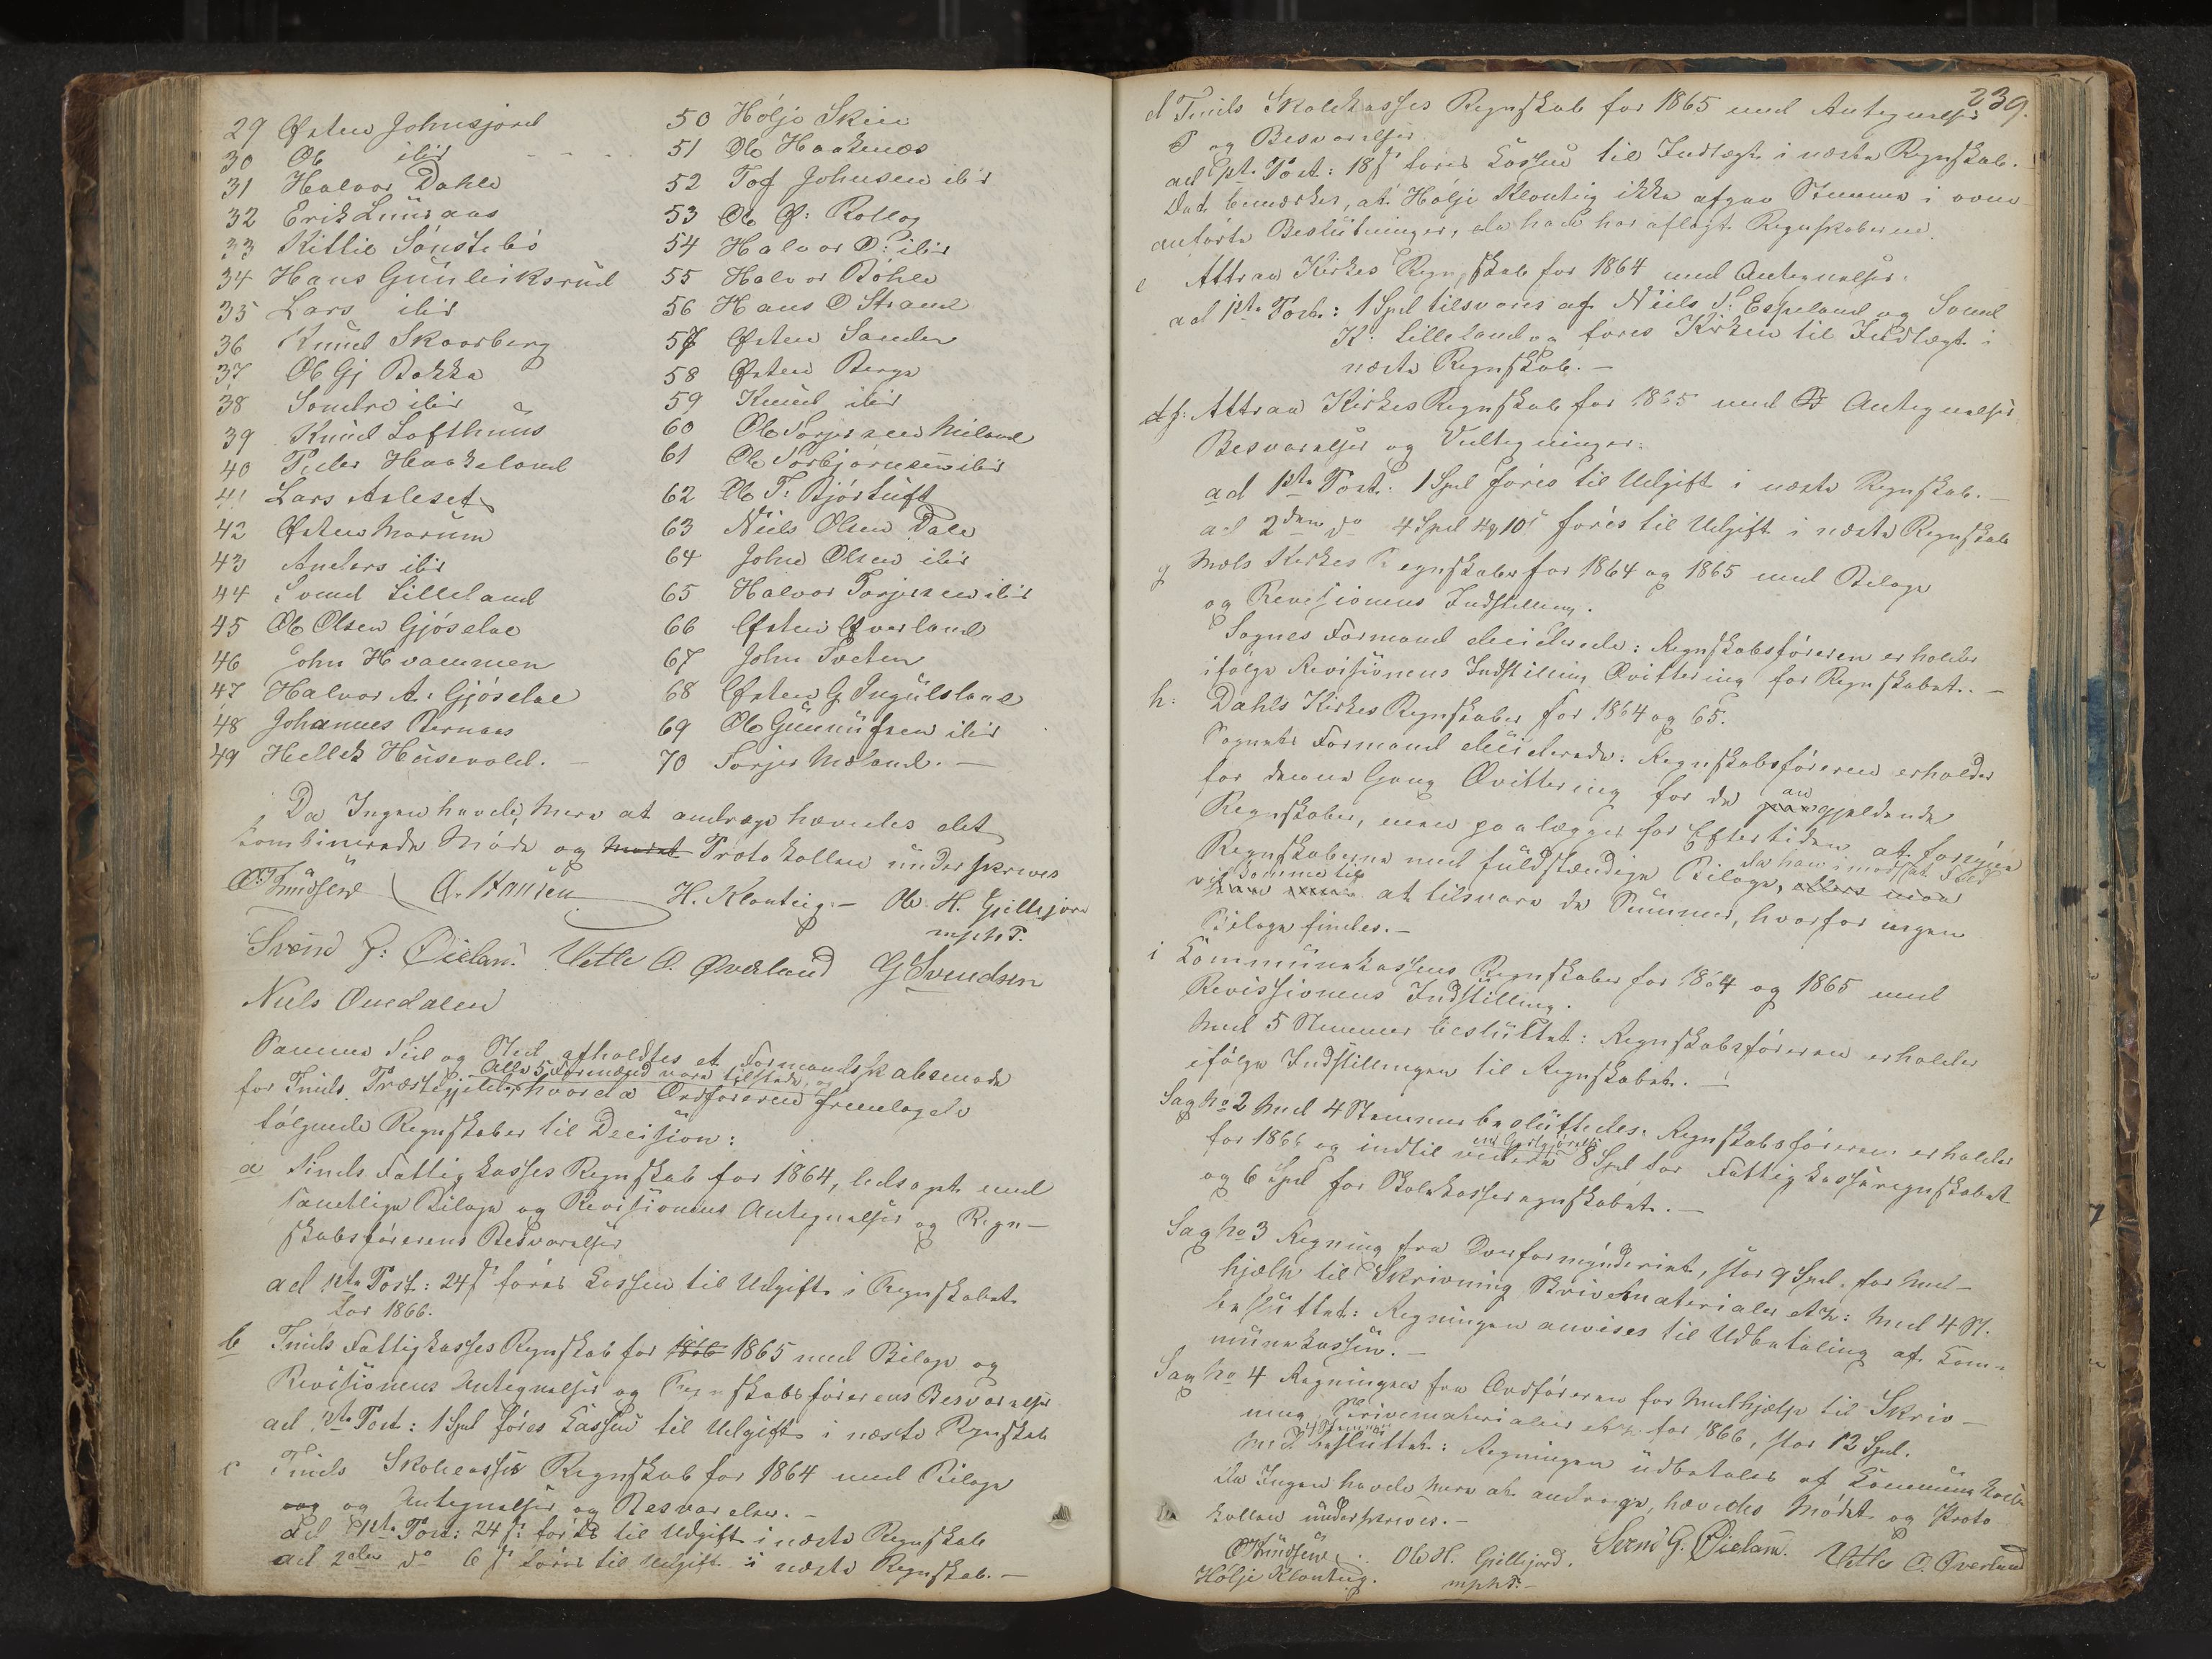 29 Østen Johnsjord
30 Ole ibid
31 Halvor Dahle
32 Erik Luuraas
33 Kittil Sønstebø
34 Hans Gunleiksrud
35 Lars ibid
36 Knud Skaarberg
37 Ole Gj Bakka
38 Sondre ibid
39 Knud Lofthuus
40 Peder Haakaland
41 Lars Asleset
42 Østen Marum
43 Anders ibid
44 Svend Lilleland
45 Ole Olsen Gjøselve
46 John Hvammen
47 Halvor A. Gjøselve
48 Johannes Bernaas
49 Hellek Husevold. —
50 Hølje Skeie
51 Ole Haakenæs
52 Tof Johnsen ibid
53 Ole O: Rollag
54 Halvor O: ibid
55 Halvor Bøhle
56 Hans O Strand
57 Østen Sanden
58 Østen Berge
59 Knud ibid
60 Ole Torjersen Miland
61 Ole Torbjørnsen ibid
62 Ole T: Bjørtuft
63 Niels Olsen Dale
64 John Olsen ibid
65 Halvor Torjersen ibid
66 Østen Øverland
67 John Tveten
68 Østen G Ingulsland
69 Ole Gunnufsen ibid
70 Torjer Moland. —
Da Ingen havde Mere at andrage hævedes det
kombinerede Møde og Mødet Protokollen underskreves
O. Knudsen O. Hansen H. Klouteig. — Ole H. Gjillejord
mphP.
Svend G: Øieland. Vetle O. Øverland G Svendsen
Niels Ouedalen
Samme Tid og Sted afholdtes et Formandskabsmøde
Alle 5 Formænd vare tilstede, og
for Tinds Præstegjeld, hvorda Ordføreren fremlagde
følgende Regnskaber til Decision:
a Tinds Fattigkasses Regnskab for 1864, ledsaget med
samtlige Bilage og Revisionens Antegnelser og Regn-
skabsførerens Besvarelser
ad 1ste Post: 24 ß føres Kassen til Udgift i Regnskabet
for 1866.
b Tinds Fattigkasses Regnskab for 1866 1865 med Bilage og
Revisionens Antegnelser og Regnskabsførerens Besvarelser
ad 1ste Post: 1 Spd føres Kassen til Udgift i næste Regnskab
c Tinds Skolecasses Regnskab for 1864 med Bilage
og og Antegnelser og Besvarelser. —
ad 1ste Post: 24 ß føres til Udgift i næste Regnskab
ad 2den do 6 ß føres til Udgift i næste Regnskab. —
239.
d Tinds Skolekasses Regnskab for 1865 med Antegnelser
og Besvarelser
ad 1ste Post: 18 ß føres Kassen til Indtægt i næste Regnskab.
Det bemærkes, at Hølje Kloutig ikke afgav Stemme i oven
anførte Beslutninger, da han har aflagt Regnskaberne.
e Attraa Kirkes Regnskab for 1864 med Antegnelser.
ad 1ste Post: 1 Spd tilsvares af Niels S. Espeland og Svend
K. Lilleland og føres Kirken til Indtægt i
næste Regnskab. —
f: Attraa Kirkes Regnskab for 1865 med Antegnelser
Besvarelser og Vedtegninger.
ad 1ste Post: 1 Spd føres til Udgift i næste Regnskab. —
ad 2den do 4 Spd 4 10 ß føres til Udgift i næste Regnskab
g Mæls Kirkes Regnskaber for 1864 og 1865 med Bilage
og Revisionens Indstilling.
Sognes Formænd deciderede: Regnskabsføreren erholder
ifølge Revisionens Indstilling Qvittering for Regnskabet. —
h: Dahls Kirkes Regnskaber for 1864 og 65.
Sognets Formænd deciderede: Regnskabsføreren erholder
for denne Gang Qvittering for de angjældende
Regnskaber, men paalægges for Eftertiden at forsyne
Regnskaberne med fuldstændige Bilage, da han i modsat Fald
vil komme til at tilsvare de Summer, hvorfor ingen
Bilage findes. —
i Kommunekassens Regnskaber for 1864 og 1865 med
Revisionens Indstilling.
Med 5 Stemmer besluttet: Regnskabsføreren erholder
ifølge Indstillingen til Regnskabet. —
Sag No 2 Med 4 Stemmer besluttedes: Regnskabsføreren erholder
for 1866 og indtil videre en Godtgjørelse 8 Spd for Fattigkasseregnskabet
og 6 Spd for Skolekasseregnskabet. —
Sag No 3 Regning fra Overformynderiet, stor 9 Spd. for Med-
hjælp til Skrivning Skrivematerialer etc: Med 4 St.
besluttet: Regningen anvises til Udbetaling af Kom-
munekassen. —
Sag No 4 Regningen fra Ordføreren for Medhjælp til Skriv-
ning Skrivematerialier etc. for 1866, stor 12 Spd.
Med 4 Stemmer besluttet: Regningen udbetales af Kommunekassen
Da Ingen havde Mere at andrage, hævedes Mødet og Proto
kollen underskreves. —
O Knudsen. Ole H. Gjillejord. Svend G. Øieland. Vetle O. Øverland
Hølje Klouteig. mphP. —